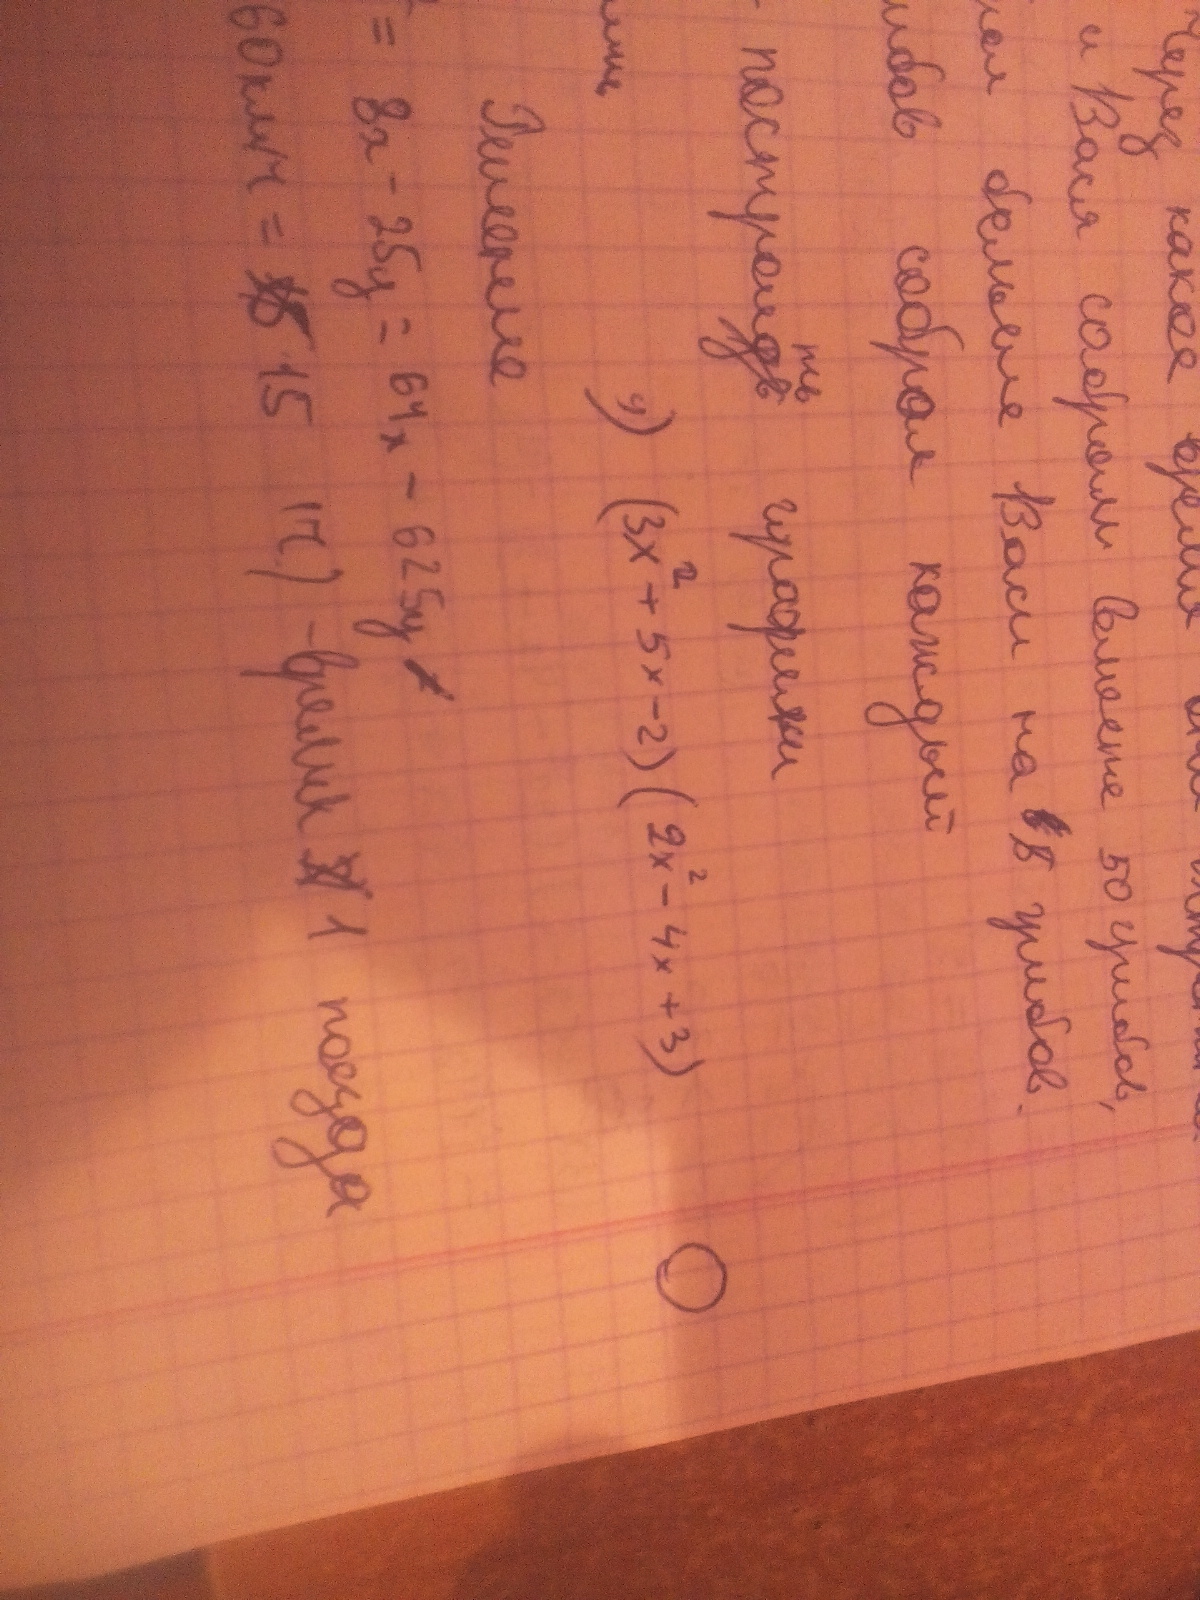 Через какое время они
и Вася собрали вместе 50 грибов,
больше Васи на 8 грибов.
собрал каждый
- построить графики
4) (3x² + 5x - 2)(2x² - 4x + 3)
Решение
= 8x - 25y = 64x - 625y
60км/ч = 15 (ч) - время 1 поезда